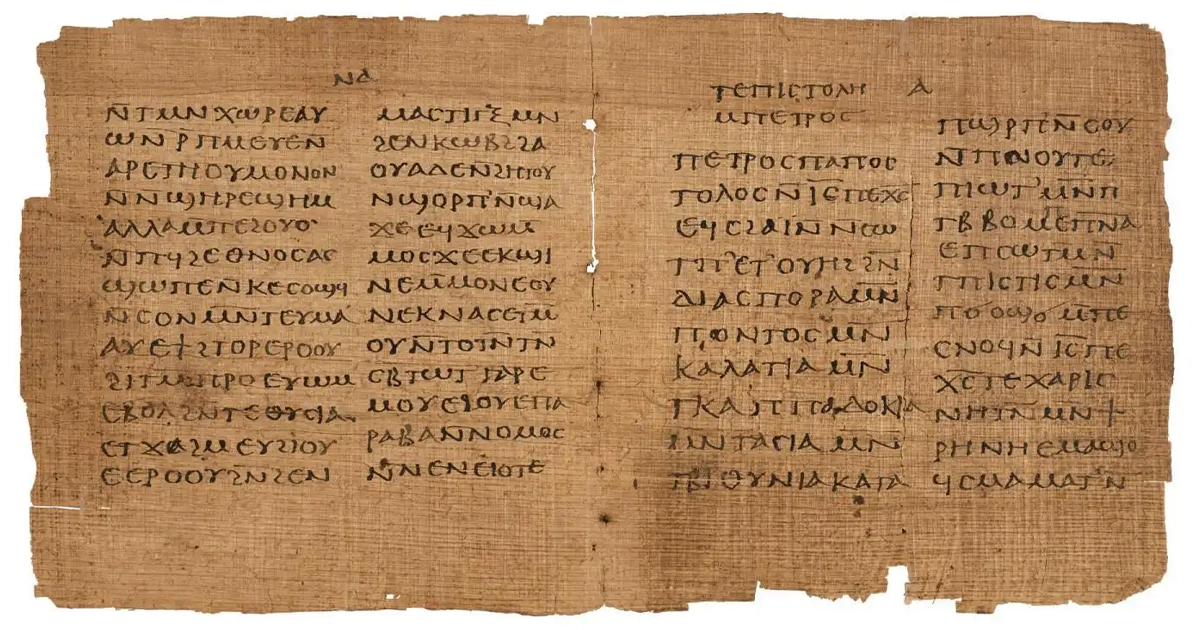 ⲛⲁ
ⲛ̄ⲧⲙⲛⲭⲱⲣⲉⲁⲩ
ⲱⲛ̄ⲣ̄ⲡⲙⲉⲩⲉⲛ̄
ⲁⲣⲉⲧⲏⲟⲩⲙⲟⲛⲟⲛ
ⲛ̄ⲛ̄ϣⲏⲣⲉϣⲏⲙ
ⲁⲗⲗⲁⲙⲡⲉϩⲟⲩⲟ
ⲛ̄ⲡϥϩⲉⲑⲛⲟⲥⲁⲥ
ϣⲱⲡⲉⲛ̄ⲕⲉⲥⲟϣϥ
ⲛ̄ⲥⲟⲛⲙ̄ⲛ̄ⲧⲉⲩⲙⲁ
ⲁⲩⲉϯϩⲧⲟⲣⲉⲣⲟⲟⲩ
ϩⲓⲧⲙ̄ⲡⲣⲟⲉⲩⲱⲙ
ⲉⲃⲟⲗϩⲛ̄ⲧⲉⲑⲩⲥⲓⲁ
ⲉⲧⲭⲁϩⲙⲉⲩϩⲓⲟⲩ
ⲉⲉⲣⲟⲟⲩϩⲛ̄ϩⲉⲛ
ⲙⲁⲥⲧⲓⲅⲝⲙⲛ
ϩⲉⲛⲕⲱⲃϩϩⲁ
ⲟⲩⲁⲇⲉⲛ̄ϩⲏⲧⲟⲩ
ⲛϣⲟⲣⲡ'ⲛ̄ϣⲁ
ϫⲉⲉϥϫⲱⲙ̄
ⲙⲟⲥϫⲉⲉⲕϣⲓ
ⲛⲉⲙ̄ⲙⲟⲛⲉⲟⲩ
ⲛⲉⲕⲛⲁⲥⲉⲧⲙ̄
ⲟⲩⲛ̄ⲧⲟⲧⲛ̄ⲧⲛ̄
ⲥⲃⲧⲱⲧ'ⲅⲁⲣⲉ
ⲙⲟⲩⲉϩⲟⲩⲉⲡⲁ
ⲣⲁⲃⲁⲛ̄ⲛⲟⲙⲟⲥ
ⲛ̄ⲛⲉⲛⲉⲓⲟⲧⲉ
ⲧⲉⲡⲓⲥⲧⲟⲗⲏ ⲁ
ⲙⲡⲉⲧⲣⲟⲥ
ⲡⲉⲧⲣⲟⲥⲡⲁⲡⲟⲥ
ⲧⲟⲗⲟⲥⲛ̄ⲓ̄ⲥ̄ⲡⲉⲭ̄ⲥ̄
ⲉϥⲥϩⲁⲓⲛ̄ⲛⲥⲱ
ⲧⲡ'ⲉⲧ'ⲟⲩⲏϩϩⲛ̄
ⲇⲓⲁⲥⲡⲟⲣⲁⲙ̄ⲛ̄
ⲡⲟⲛⲧⲟⲥⲙ̄ⲛ
ⲕⲁⲗⲁⲧⲓⲁⲙ̄ⲛ̄
ⲧⲕⲁⲡⲡⲁⲇⲟⲕⲓⲁ
ⲙⲛ̄ⲧⲁⲥⲓⲁⲙ̄ⲛ
ⲧⲃⲓⲑⲩⲛⲓⲁⲕⲁⲧⲁ
ⲡϣⲣⲡ'ⲛ̄ⲥⲟⲟⲩ
ⲛ̄ⲡⲛⲟⲩⲧⲉ
ⲡⲓⲱⲧ'ⲙ̄ⲛⲡ
ⲧⲃ̄ⲃⲟⲙⲉⲡⲛ̄ⲁ̄
ⲉⲡⲥⲱⲧⲙⲛ̄
ⲧⲡⲓⲥⲧⲓⲥⲙ̄ⲛ
ⲡϭⲟϣϭ̄ⲙ̄ⲡⲉ
ⲥⲛⲟϥⲛ̄ⲓ̄ⲥ̄ⲡⲉ
ⲭ̄ⲥ̄ⲧⲉⲭⲁⲣⲓⲥ
ⲛⲏⲧⲛ̄ⲙ̄ⲛϯ
ⲣⲏⲛⲏⲉⲙⲁϣⲟ
ϥⲥⲙⲁⲙⲁⲁⲧ'ⲛ̄